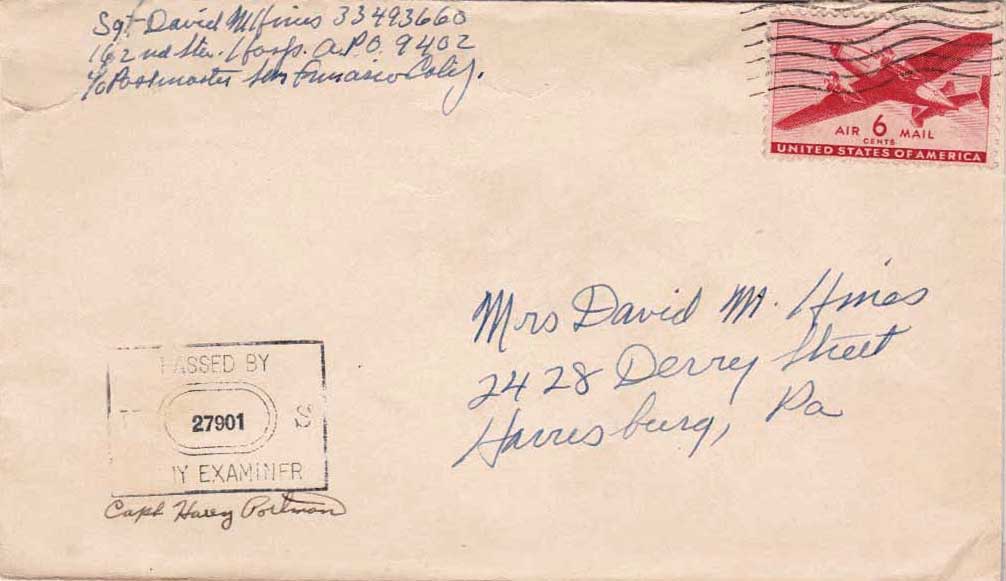 Sgt David M Hines 33493660
162nd Sta. Hosp. A.P.O. 9402
c/o Postmaster San Francisco Calif.
AIR 6 MAIL
CENTS
UNITED STATES OF AMERICA
Mrs David M. Hines
2428 Derry Street
Harrisburg, Pa
PASSED BY
27901 S
MY EXAMINER
Capt Harry